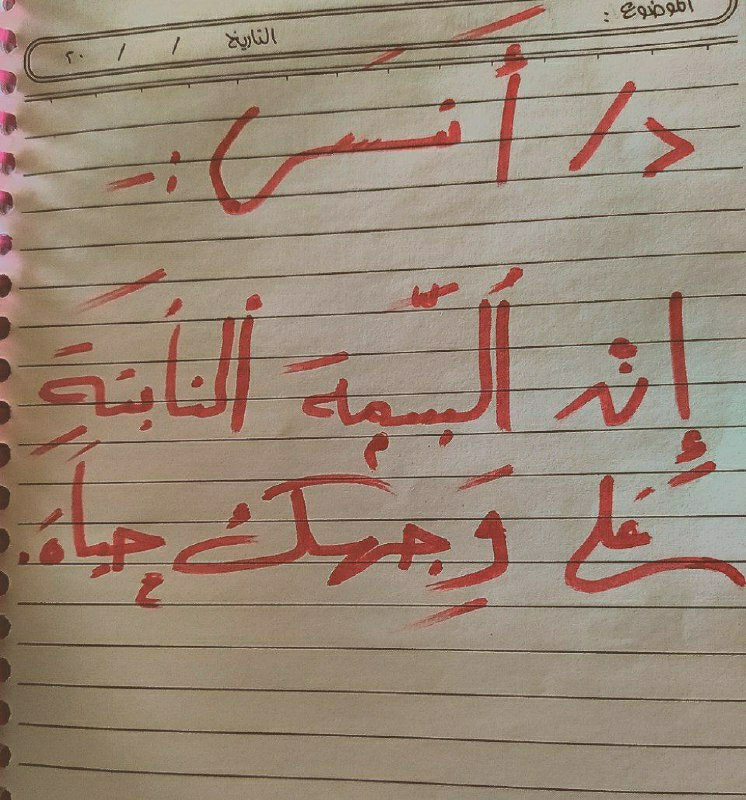 الموضوع :
التاريخ / / ٢٠
د/ أنس :-
إن البسمة النابتة
على وجهك حياة.